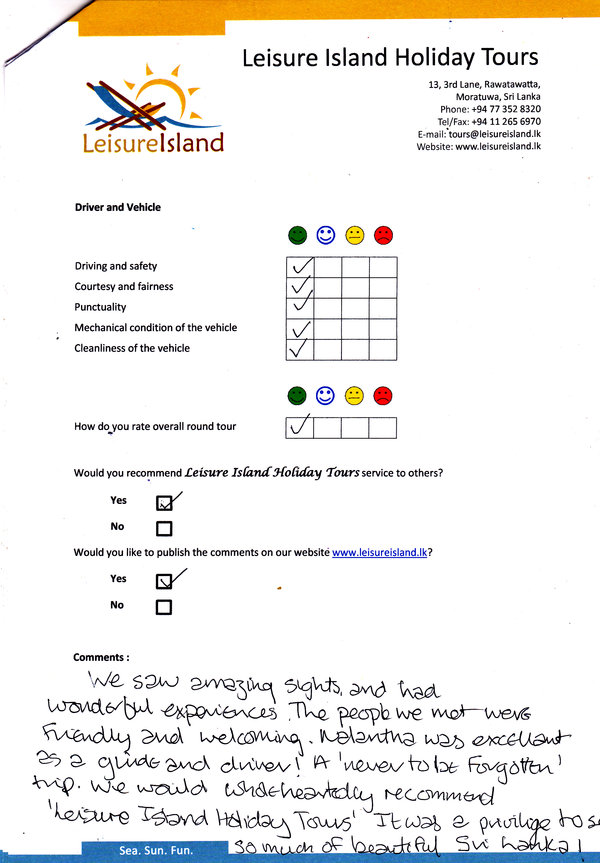 Leisure Island Holiday Tours
13, 3rd Lane, Rawatawatta,
Moratuwa, Sri Lanka
Phone: +94 77 352 8320
Tel/Fax: +94 11 265 6970
E-mail: tours@leisureisland.lk
Website: www.leisureisland.lk
LeisureIsland
Driver and Vehicle
Driving and safety
Courtesy and fairness
Punctuality
Mechanical condition of the vehicle
Cleanliness of the vehicle
How do you rate overall round tour
Would you recommend Leisure Island Holiday Tours service to others?
Yes
No
Would you like to publish the comments on our website www.leisureisland.lk?
Yes
No
Comments :
We saw amazing sights, and had
wonderful experiences. The people we met were
friendly and welcoming. Nalantha was excellent
as a guide and driver! A 'never to be forgotten'
trip. We would wholeheartedly recommend
'Leisure Island Holiday Tours' It was a privilege to se
so much of beautiful Sri Lanka!
Sea. Sun. Fun.